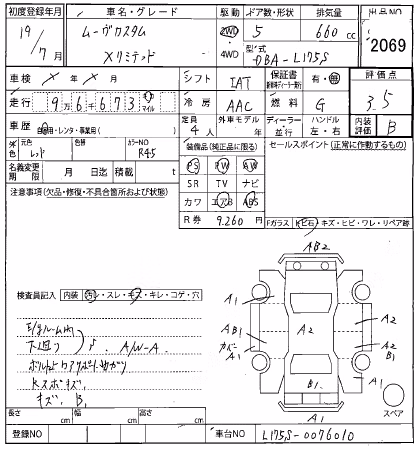 初度登録年月 車名・グレード 駆動 ドア数・形状 排気量 出品NO
19 / 7月 ムーヴカスタム Xリミテッド 2WD ・ 4WD 5 660 cc 2069
型式 DBA-L175S
車検 × 年 × 月 シフト IAT 保証書 有・無 評価点
走行 9万6千673 キロ マイル 冷房 AAC 燃料 G 3.5
車歴 自家用・レンタ・事業用( ) 定員 4人 外車モデル 年 ディーラー・並行 ハンドル 左・右 内装評価 B
外色 元色 レッド 色替 カラーNO R45 装備品(純正品に限る) セールスポイント(正常に作動するもの)
名義変更期限 月 日迄 積載 t PS PW AW
SR TV ナビ
注意事項(欠品・修復・不具合箇所および状態) カワ エアB ABS
R券 9.260円 Fガラス 飛石・キズ・ヒビ・ワレ・リペア跡
AB2
検査員記入 内装 汚・スレ・キズ・キレ・コゲ・穴
A1
A2
AB1
A2
カバーA1
B1
B1
A1
A1
スペア
下回り A/W-A
キズ、B1
長さ cm 幅 cm 高さ cm
登録NO 車台NO L175S-0076010